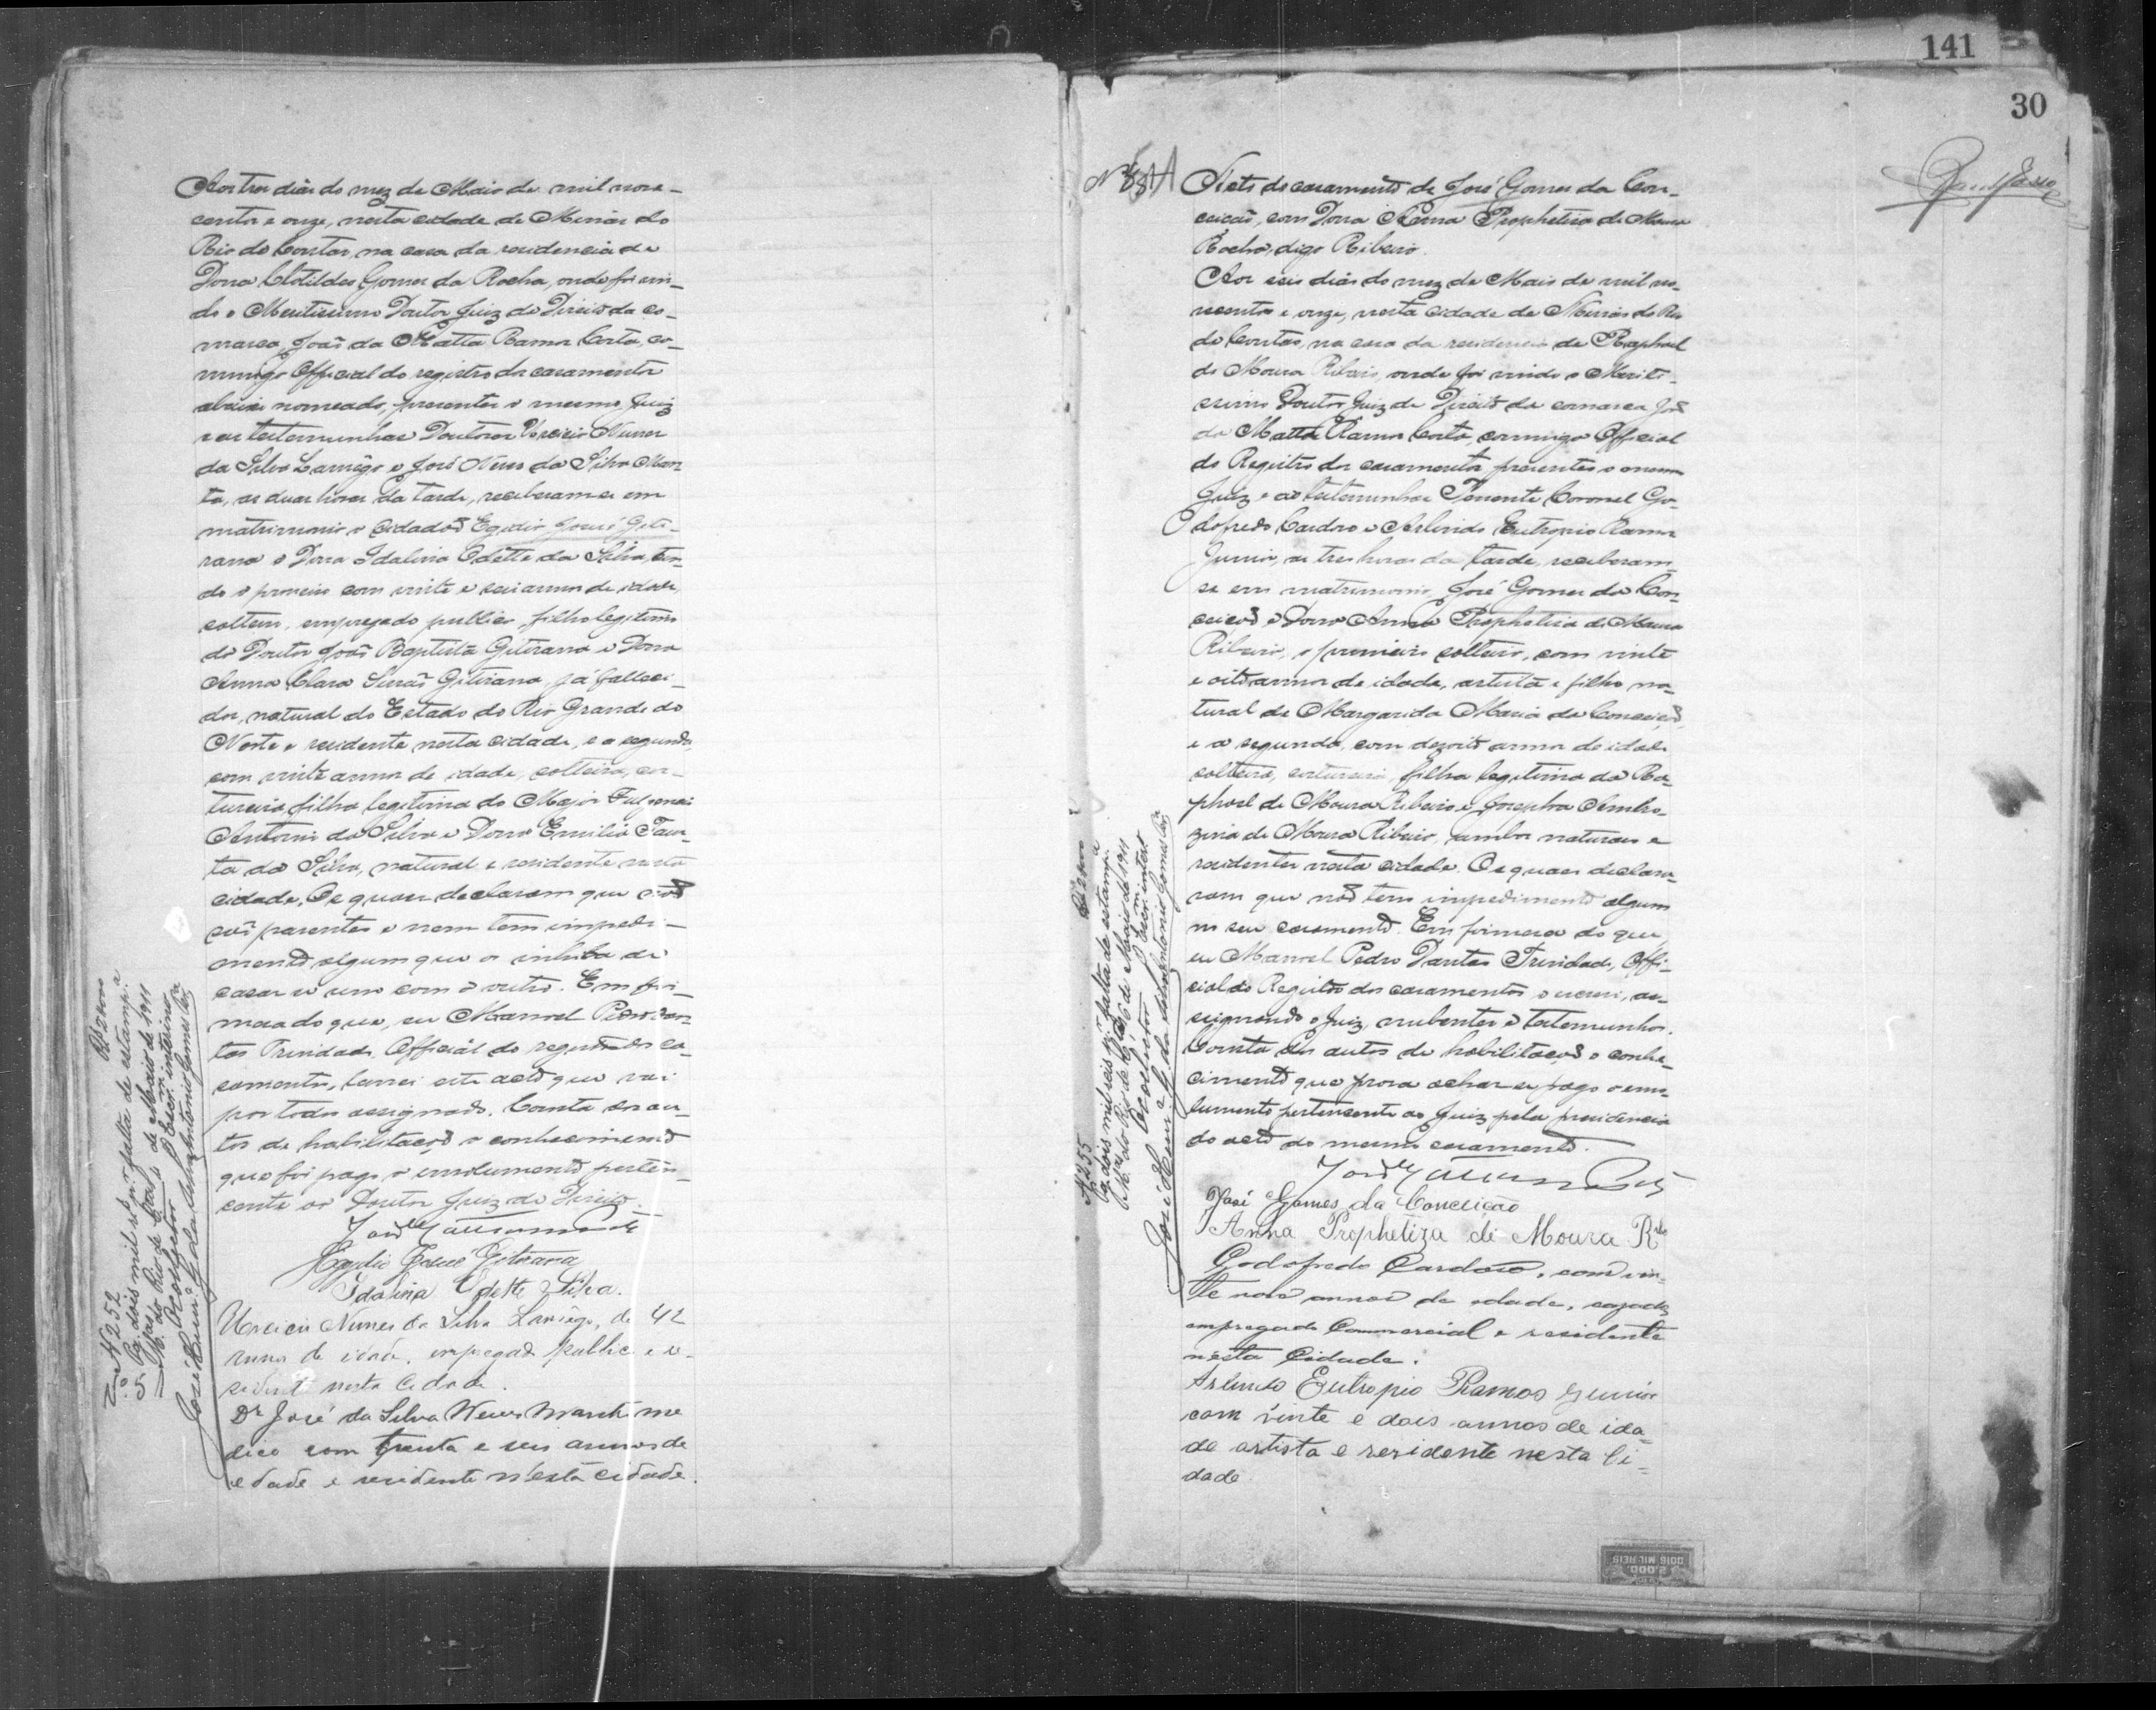 Aos tres dias do mez de Maio de mil nove-
centos e onze, nesta cidade de Minas do
Rio de Contas, na casa da residencia de
Dona Clotildes Gomes da Rocha, onde foi vin-
do o Meritissimo Doutor Juiz de Direito da co-
marca, João da Matta Ramos Costa, co-
migo Official do registro dos casamentos
abaixo nomeado, presentes o mesmo Juiz
e as testemunhas Doutores Nunes
da Silva Lamêgo e José Neves da Silva
as duas horas da tarde, receberam-se em
matrimonio o cidadão Egidio José Giti-
rana e Dona Idalina Odette da Silva, ten-
do o primeiro com vinte e seis annos de idade,
solteiro, empregado publico, filho legitimo
do Doutor João Baptista Gitirana e Dona
Anna Clara Gitirana, já falleci-
dos, natural do Estado do Rio Grande do
Norte e residente nesta cidade, e a segunda,
com vinte annos de idade, solteira, cos-
tureira, filha legitima do Major
Antonio da Silva e Dona Emilia
da Silva, natural e residente nesta
cidade. Os quaes declaram que não
são parentes e nem tem impedi-
mento algum que os inhiba de
casar-se um com o outro. Em fir-
meza do que, eu Manoel Pedro Dan-
tas Trindade, Official do registro dos ca-
samentos, lavrei este acto que vai
por todos assignado. Consta dos au-
tos de habilitação o conhecimento
que foi pago o emolumento perten-
cente ao Doutor Juiz de Direito.
Egidio José Gitirana
Idalina Odette Silva.
Nunes da Silva Lamêgo, de 42
annos de idade, empregado publico e re-
sidente nesta Cidade.
Dr José da Silva Neves me
dico com trinta e seis annos de
edade e residente n'esta cidade.
N 252 Rs 2$000
Pg. dois mil rs pr falta de estampa
M. do Rio de Ctas 5 de Maio de 1911
O Colector O Escrm interino
Antonio Gomes
141
30
Acto do casamento de José Gomes da Con-
ceição, com Dona Anna Prophetiza de Moura
Rocha, digo Ribeiro.
Aos seis dias do mez de Maio de mil no-
vecentos e onze, nesta cidade de Minas do Rio
de Contas, na casa da residencia de Raphael
de Moura Ribeiro, onde foi vindo o Meriti-
ssimo Doutor Juiz de Direito da comarca João
da Matta Ramos Costa, commigo Official
do Registro dos casamentos, presentes o mesmo
Juiz e as testemunhas Tenente Coronel Go-
dofredo Cardoso e Arlindo Eutropio Ramos
Junior, as tres horas da tarde, receberam-
se em matrimonio, José Gomes da Con-
ceição e Dona Anna Prophetiza de Moura
Ribeiro, o primeiro solteiro, com vinte
e oito annos de idade, artista e filho na-
tural de Margarida Maria da Conceição,
e a segunda, com dezoito annos de idade
solteira, costureira, filha legitima de Ra-
phael de Moura Ribeiro e Josepha Ambro-
zina de Moura Ribeiro, ambos naturaes e
residentes nesta cidade. Os quaes declara-
ram que não tem impedimento algum
no seu casamento. Em firmeza do que
eu Manoel Pedro Dantas Trindade, Offi-
cial do Registro dos casamentos o escrevi, as-
signando o Juiz, nubentes e testemunhas.
Consta dos autos de habilitação o conhe-
cimento que prova achar-se pago o emo-
lumento pertencente ao Juiz pela presidencia
do acto do mesmo casamento.
José Gomes da Conceição
Anna Prophetiza de Moura Rbro
Godofredo Cardoso, com vin-
te nove annos de edade, cazado
empregado Commercial e residente
nesta Cidade.
Arlindo Eutropio Ramos Junior
com vinte e dois annos de ida-
de artista e residente nesta Ci-
dade
N 255 Rs 2$000
Pg. dois mil reis pr falta de estampa
M. do Rio de Ctas 6 de Maio de 1911
O Colector O Escrm intero
Antonio Gomes
2.000
DOIS MIL REIS